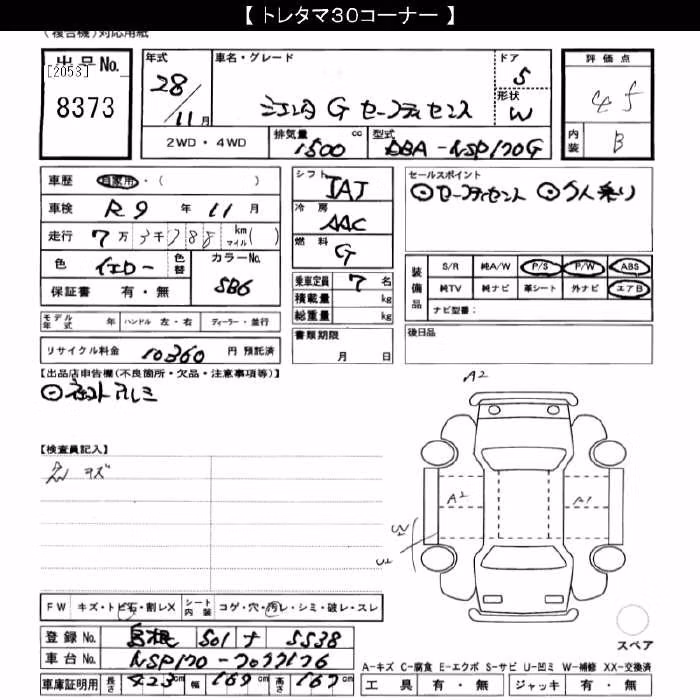 【 トレタマ30コーナー 】
(複合機)対応用紙
出品No.
[2053]
8373
年式
28/11月
車名・グレード
シエンタ G セーフティセンス
ドア
5
形状
W
評価点
内装
B
2WD・4WD
排気量
1500 cc
型式
DBA-NSP170G
車歴 自家用・( )
車検 R9 年 11 月
走行 7万3千288 km マイル( )
色 イエロー 色替
カラーNo.
5B6
保証書 有・無
シフト
IAT
冷房
AAC
燃料
G
乗車定員 7 名
積載量 kg
総重量 kg
セールスポイント
⊙セーフティセンス ⊙7人乗り
装備品
S/R 純A/W P/S P/W ABS
純TV 純ナビ 革シート 外ナビ エアB
ナビ型番：
モデル年式 年 ハンドル 左・右 ディーラー・並行
リサイクル料金 10360 円 預託済
書類期限
月 日
後日品
【出品店申告欄(不良箇所・欠品・注意事項等)】
【検査員記入】
キズ
A2
A2
A1
W2
U2
FW キズ・トビ石・割レX シート内装 コゲ・穴・汚レ・シミ・破レ・スレ
登録No. 島根 501 ナ 5538
車台No. NSP170-7077176
車庫証明用 長さ 423 cm 幅 169 cm 高さ 167 cm
スペア
A-キズ C-腐食 E-エクボ S-サビ U-凹ミ W-補修 XX-交換済
工具 有・無 ジャッキ 有・無